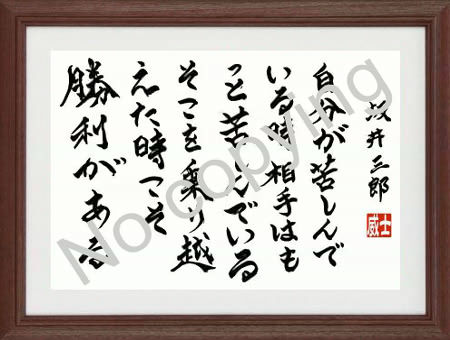 坂井三郎
威士
自分が苦しんで
いる時相手はも
っと苦しんでいる
そこを乗り越
えた時こそ
勝利がある
No copying